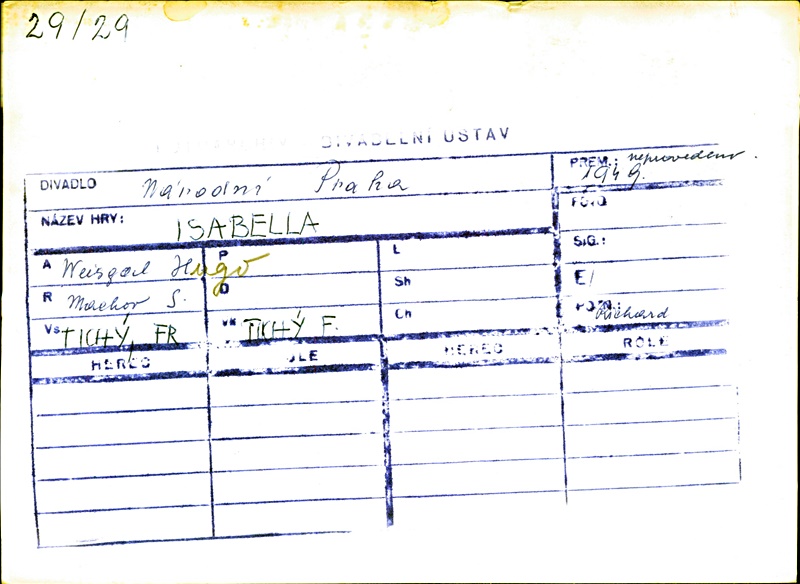 29/29
DIVADELNÍ ÚSTAV
DIVADLO Národní Praha
PREM.: neprovedeno. 1949.
NÁZEV HRY: ISABELLA
FOTO
A Weisgal Hugo
P
L
SIG.:
R Machov S.
D
Sh
E/
Vs TICHÝ, FR
VK TICHÝ F.
Ch
POZN.: Richard
HEREC ROLE HEREC ROLE